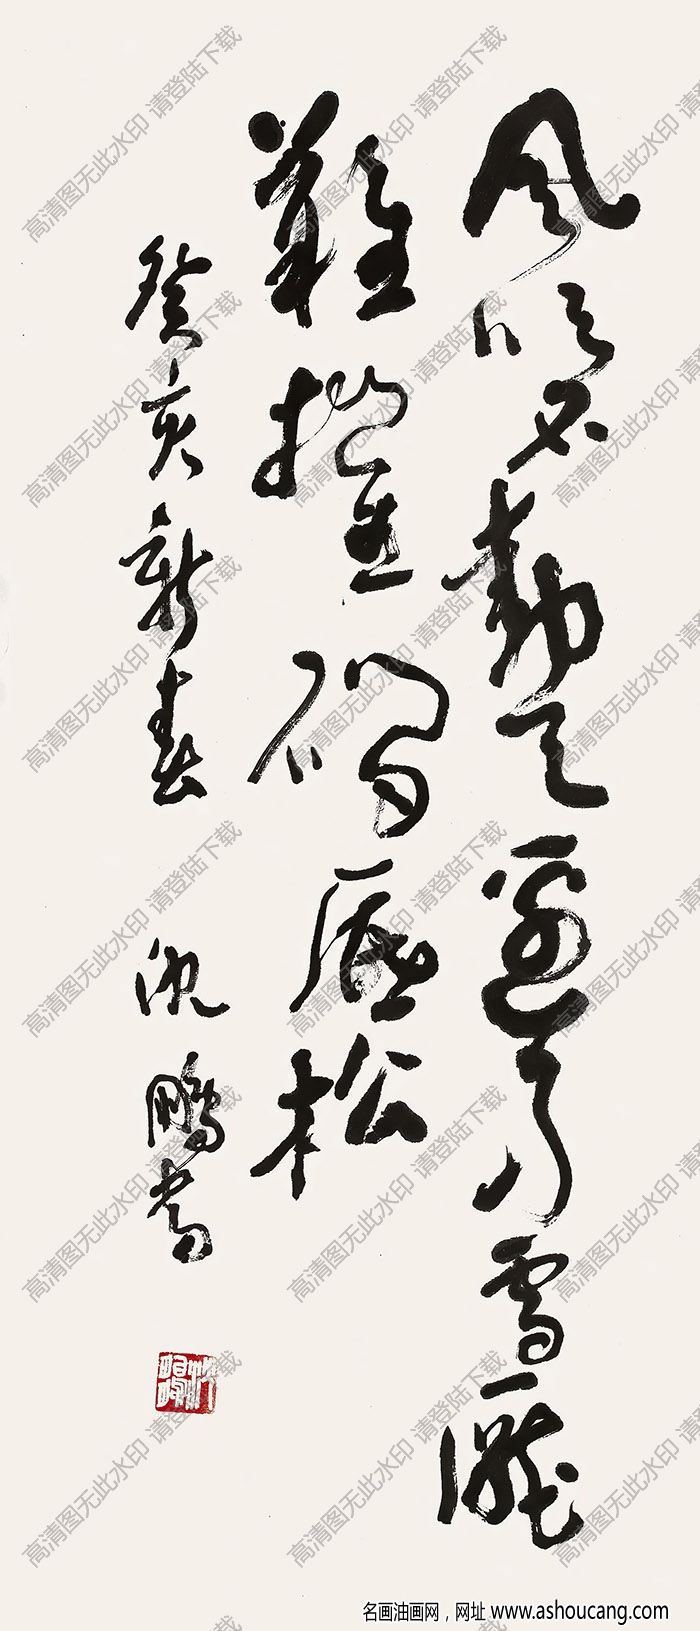 風吹不動天邊月雪壓
難摧磵底松
癸亥新春 沈鵬書
高清图无此水印 请登陆下载
名画油画网，网址 www.ashoucang.com